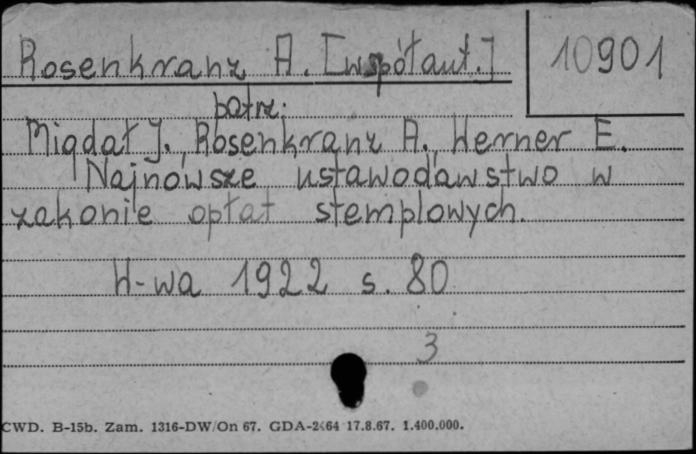 Rosenkranz A. [współaut.]
10901
patrz.
Migdał J., Rosenkranz A., Werner E.
Najnowsze ustawodawstwo w
zakonie opłat stemplowych.
W-wa 1922 s. 80
3
CWD. B-15b. Zam. 1316-DW/On 67. GDA-2464 17.8.67. 1.400.000.